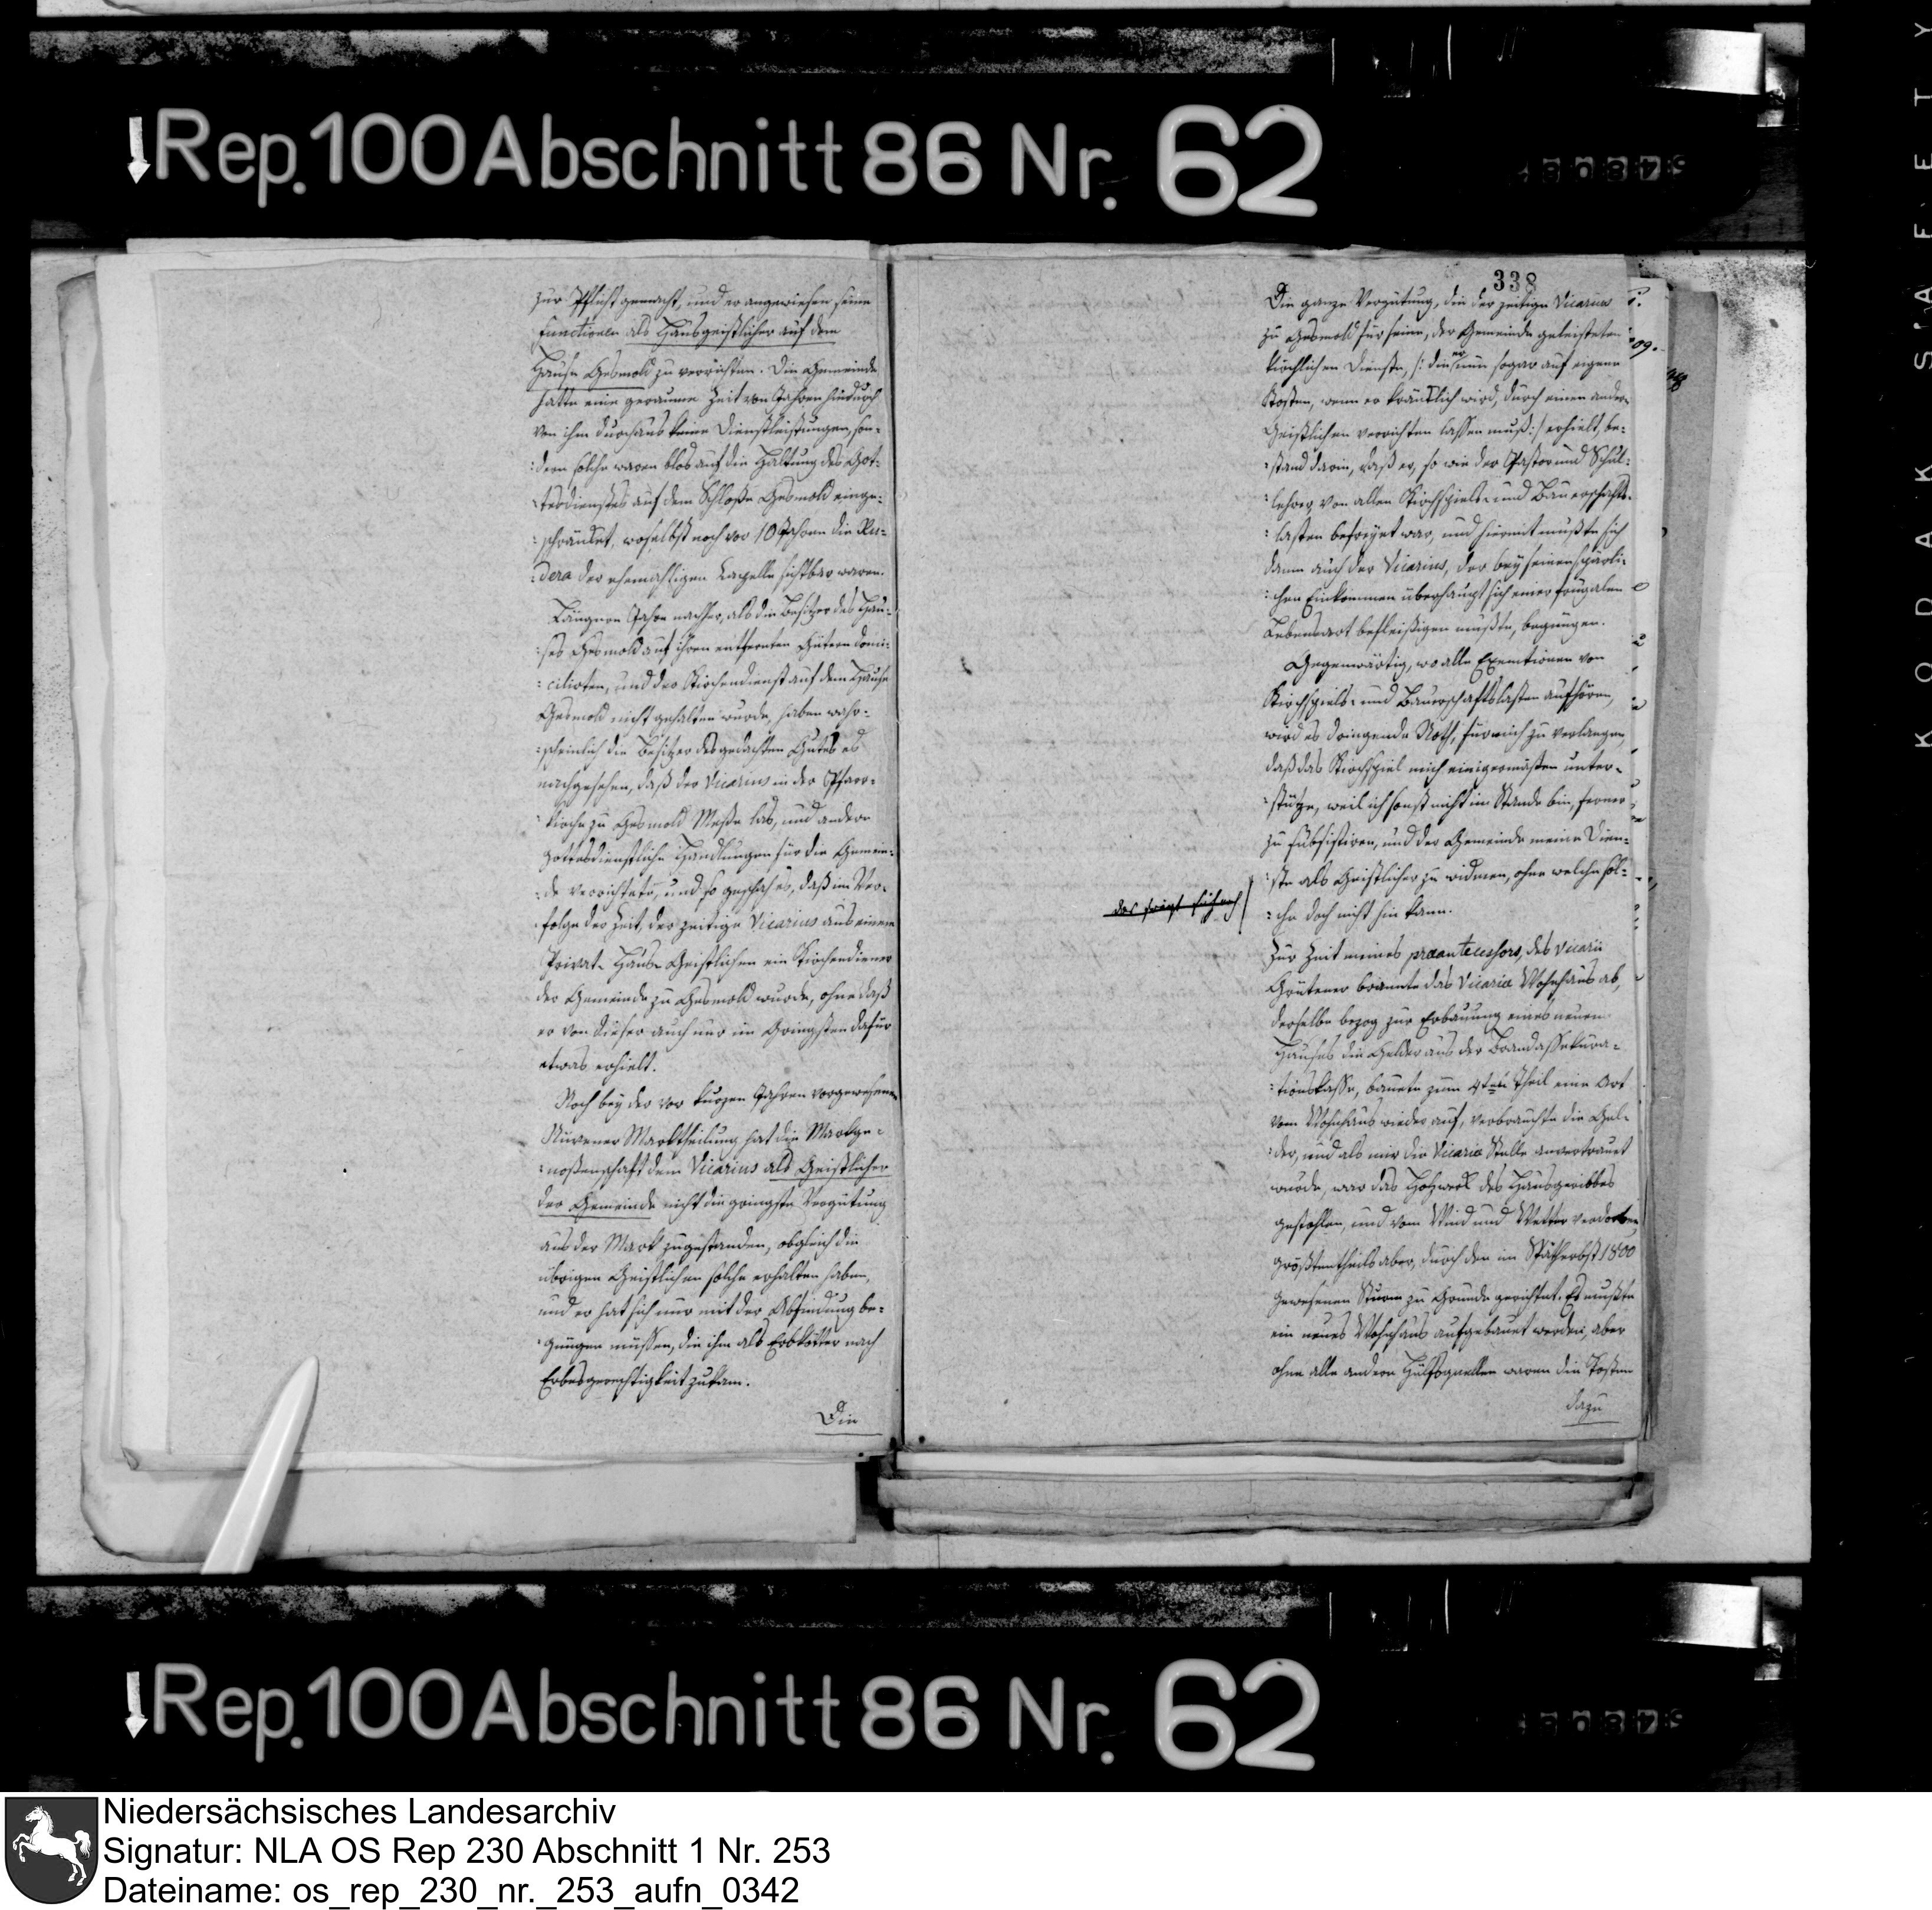 Rep. 100 Abschnitt 86 Nr. 62
zur Pflicht gemacht, und er angewiesen seine
Functionen als Hausgeistlicher auf dem
Hause Gesmold zu verrichten. Die Gemeinde
hatte eine geraume Zeit von Jahren hindurch
von ihm durchaus keine Dienstleistungen, son-
:dern solche waren blos auf die Haltung des Got-
:tesdienstes auf dem Schloße Gesmold einge-
:schränkt, woselbst noch vor 10 Jahren die Ru-
:dera der ehemahligen Capelle sichtbar waren.
Längere Jahre nachher, als die Besitzer des Hau-
:ses Gesmold auf ihren entfernten Gütern domi-
:cilirten, und der Kirchendienst auf dem Hause
Gesmold nicht gehalten wurde, haben wahr-
:scheinlich die Besitzer des gedachten Gutes es
nachgesehen, daß der Vicarius in der Pfarr-
:kirche zu Gesmold Meße las, und andere
gottesdienstliche Handlungen für die Gemein-
:de verrichtete, und so geschah es, daß im Ver-
:folge der Zeit, der zeitige Vicarius aus einem
Privat- Haus- Geistlichen ein Kirchendiener
der Gemeinde zu Gesmold wurde, ohne daß
er von dieser auch nur im Gringsten dafür
etwas erhielt.
Noch bey der vor kurzen Jahren vorgewesenen
Marktheilung hat die Markge-
:noßenschaft dem Vicarius als Geistlicher
der Gemeinde nicht die gringste Vergütung
aus der Mark zugestanden, obgleich die
übrigen Geistlichen solche erhalten haben,
und er hat sich nur mit der Abfindung be-
:gnügen müssen, die ihm als Erbkötter nach
Erbesgerechtigkeit zukam.
Die
338
Die ganze Vergütung, die der zeitige Vicarius
zu Gesmold für seine, der Gemeinde geleisteten
kirchlichen Dienste, /: die er nun sogar auf eigene
Kosten, wenn er kränklich wird, durch einen andern
Geistlichen verrichten lassen muß :/ erhielt, be-
:stand darin, daß er, so wie der Pastor und Schul-
:lehrer, von allen Kirchspiels- und Bauerschafts-
:lasten befreyet war, und hiermit mußte sich
dann auch der Vicarius, der bey seinem spärli-
:chen Einkommen überhaupt sich einer frugalen
Lebensart befleißigen mußte, begnügen.
Gegenwärtig, wo alle Exemtionen von
Kirchspiels- und Bauerschaftslasten aufhören,
wird es dringende Noth, für mich zu verlangen,
daß das Kirchspiel mich einigermaßen unter-
:stütze, weil ich sonst nicht im Stande bin, ferner
zu subsistiren, und der Gemeinde meine Dien-
:ste als Geistlicher zu widmen, ohne welche sol-
:che doch nicht sein kann.
Zur Zeit meines praeantecessors, des Vicarii
Grütener brannte das Vicarie Wohnhaus ab,
derselbe bezog zur Erbauung eines neuen
Hauses die Gelder aus der Brandassekura-
:tionskasse, bauete zum 4ten Theil eine Art
vom Wohnhaus wieder auf, verbrauchte die Gel-
:der, und als mir die Vicarie Stelle anvertrauet
wurde, war das Holzwerk des Hausgeribbes
gestohlen, und vom Wind und Wetter verdorben
größtentheils aber, durch den im Spätherbst 1800
gewesenen Sturm zu Grunde gerichtet. Es mußte
ein neues Wohnhaus aufgebauet werden, aber
ohne alle andere Hülfsquellen waren die Kosten
dazu
Rep. 100 Abschnitt 86 Nr. 62
KODAK SAFETY
Niedersächsisches Landesarchiv
Signatur: NLA OS Rep 230 Abschnitt 1 Nr. 253
Dateiname: os_rep_230_nr._253_aufn_0342